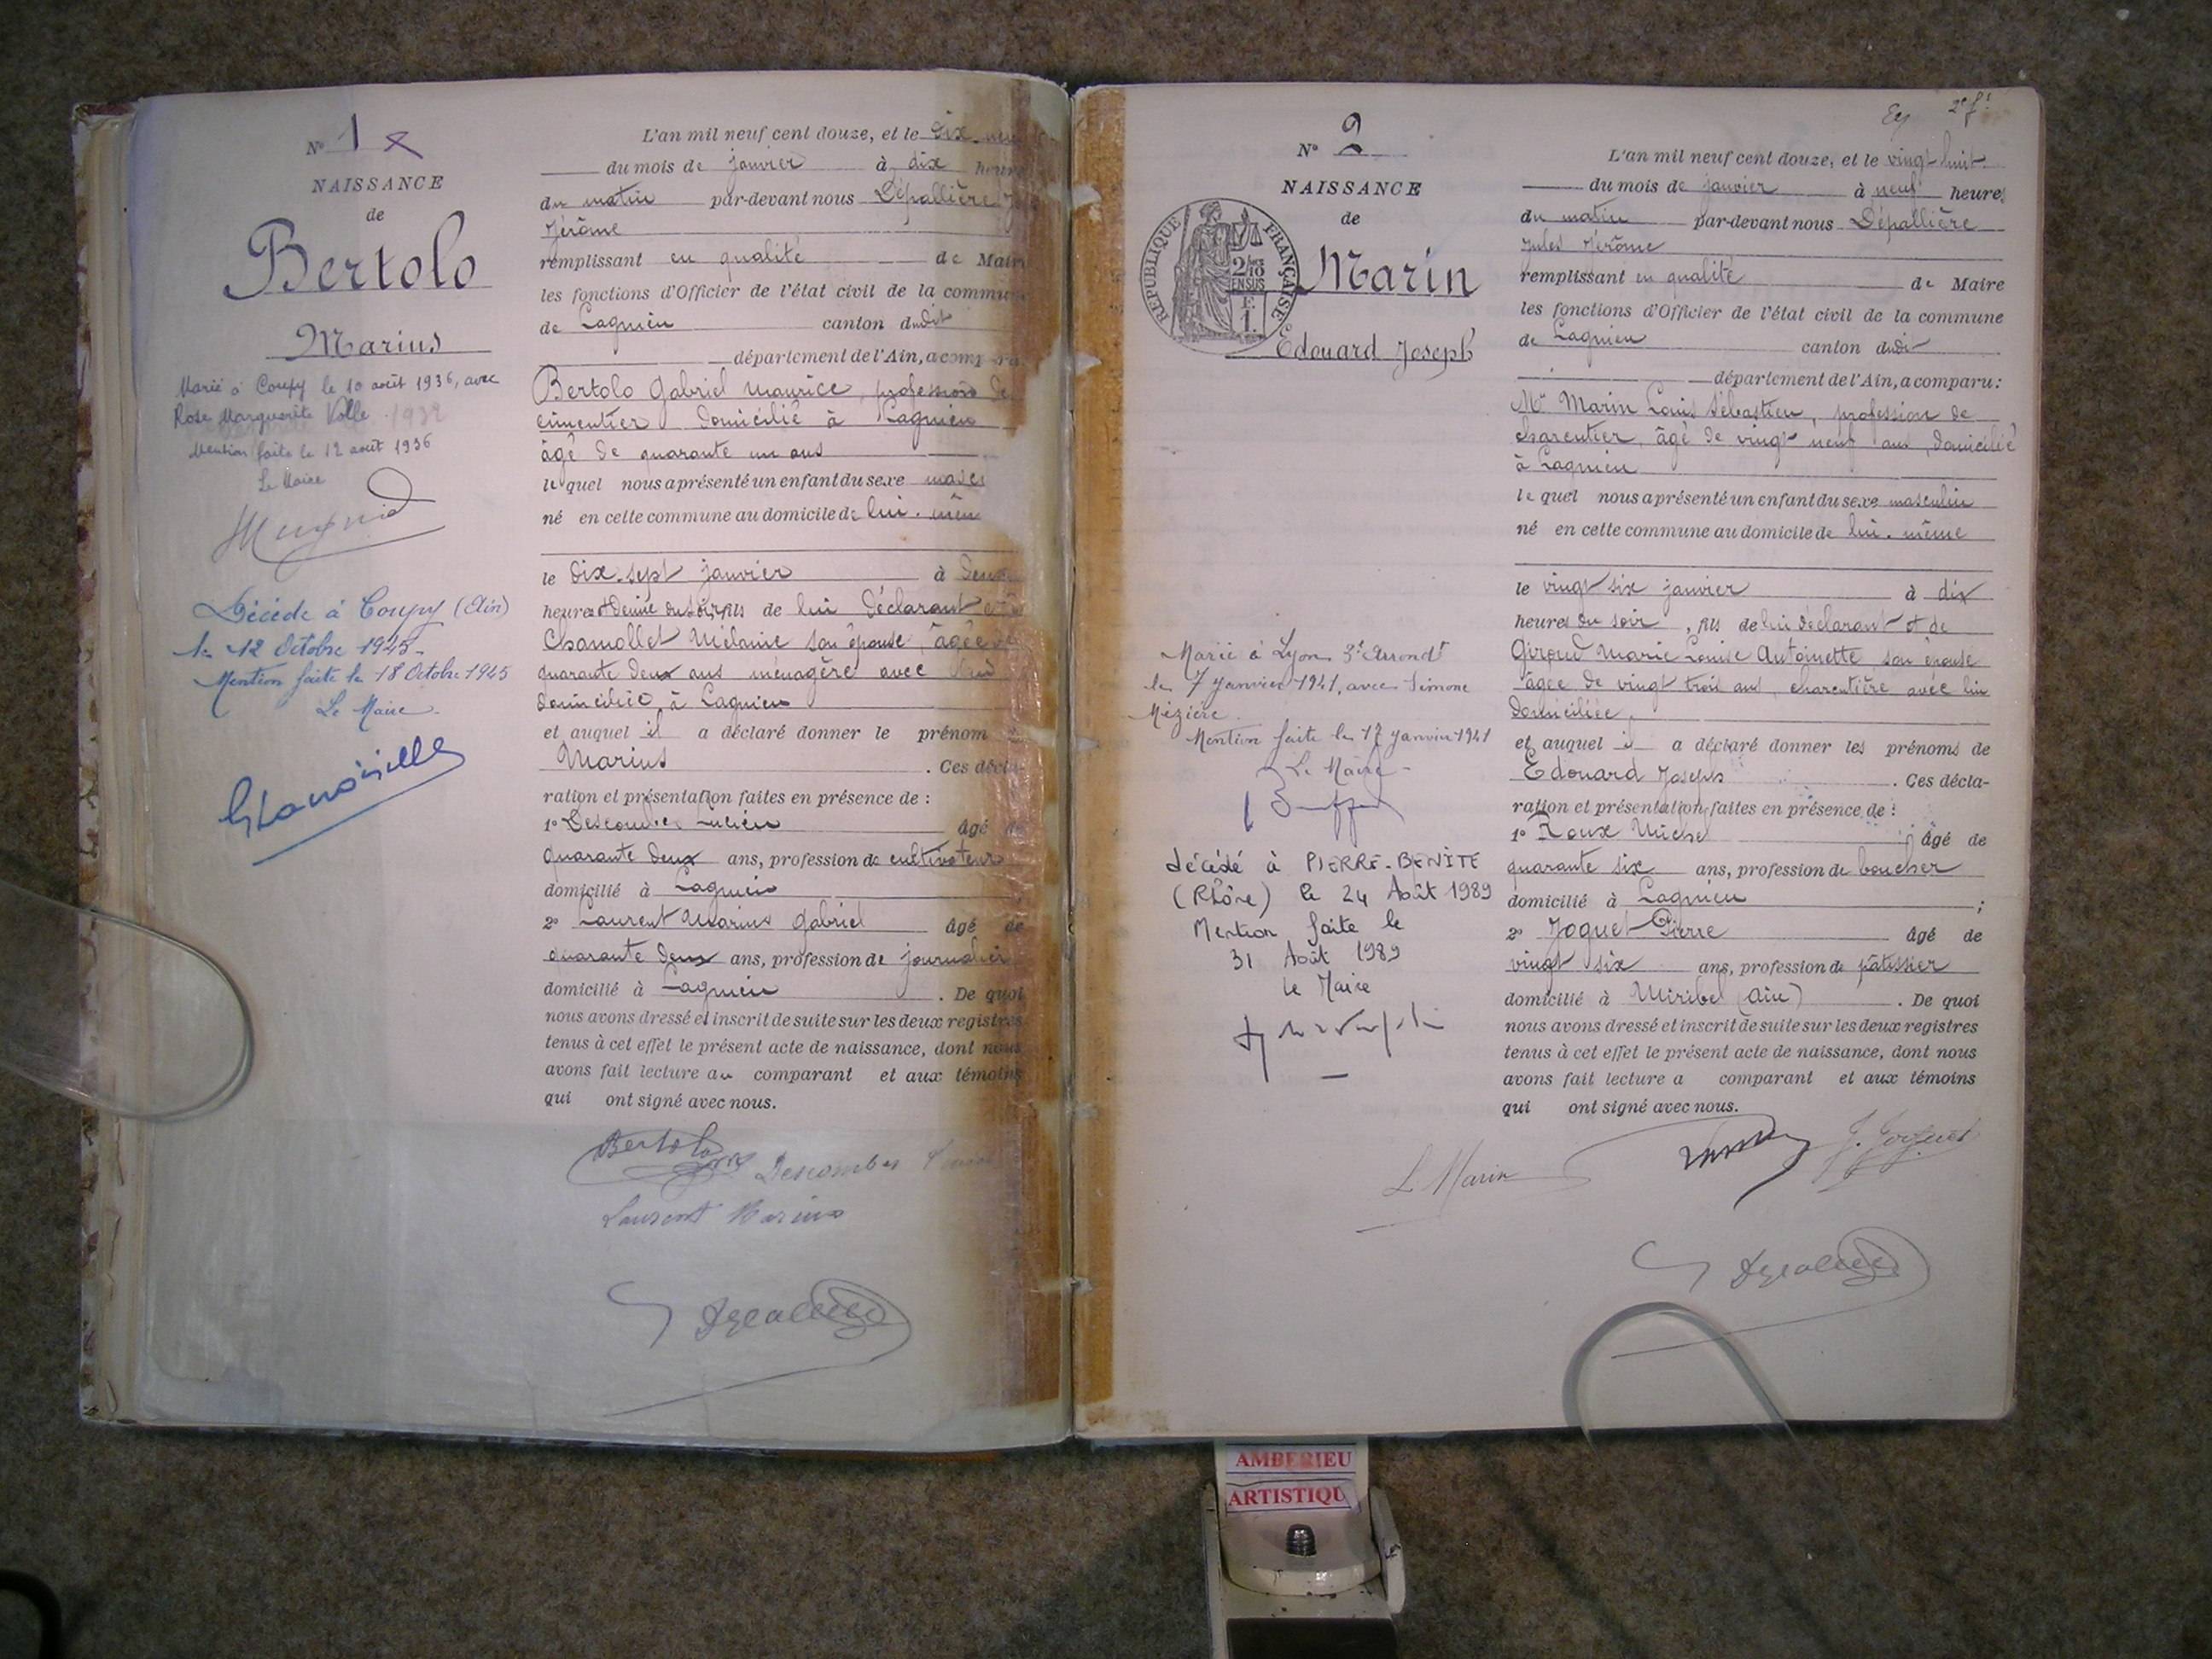 N° 1
NAISSANCE
de
Bertolo
Marius
Marié à Coupy le 10 août 1936, avec
Rose Marguerite Volle
Mention faite le 12 août 1936
Le Maire
Décédé à Coupy (Ain)
le 12 Octobre 1945
Mention faite le 18 Octobre 1945
Le Maire
L'an mil neuf cent douze, et le dix-neuf
du mois de janvier à dix heures
du matin par-devant nous Dépallière
Jérôme
remplissant en qualité de Maire
les fonctions d'Officier de l'état civil de la commune
de Lagnieu canton dudit
département de l'Ain, a comparu
Bertolo Gabriel Maurice, profession de
cimentier domicilié à Lagnieu
âgé de quarante un ans
lequel nous a présenté un enfant du sexe masc
né en cette commune au domicile de lui-même
le dix-sept janvier à deux
heures et demie du soir, fils de lui déclarant et de
Chamollet Mélanie son épouse, âgée de
quarante deux ans ménagère avec lui
domiciliée à Lagnieu
et auquel il a déclaré donner le prénom
Marius . Ces décla
ration et présentation faites en présence de :
1° Descombes Lucien âgé de
quarante deux ans, profession de cultivateur
domicilié à Lagnieu
2° Laurent Marius Gabriel âgé de
quarante deux ans, profession de journalier
domicilié à Lagnieu . De quoi
nous avons dressé et inscrit de suite sur les deux registres
tenus à cet effet le présent acte de naissance, dont nous
avons fait lecture au comparant et aux témoins
qui ont signé avec nous.
Bertolo Descombes
Laurent Marius
2e f.
N° 2
NAISSANCE
de
RÉPUBLIQUE FRANÇAISE
2/10 EN SUS
Marin
Edouard Joseph
Marié à Lyon 3e Arrondt
le 7 Janvier 1941, avec Simone
Mézière.
Mention faite le 17 janvier 1941
Le Maire
décédé à PIERRE-BENITE
(Rhône) le 24 Août 1989
Mention faite le
31 Août 1989
le Maire
L'an mil neuf cent douze, et le vingt-huit
du mois de janvier à neuf heures
du matin par-devant nous Dépallière
Jules Jérôme
remplissant en qualité de Maire
les fonctions d'Officier de l'état civil de la commune
de Lagnieu canton dudit
département de l'Ain, a comparu :
Mr Marin Louis Sébastien, profession de
charentier, âgé de vingt neuf ans, domicilié
à Lagnieu
lequel nous a présenté un enfant du sexe masculin
né en cette commune au domicile de lui-même
le vingt six janvier à dix
heures du soir, fils de lui déclarant et de
Giroud Marie Louise Antoinette, son épouse
âgée de vingt trois ans, charentière avec lui
domiciliée,
et auquel il a déclaré donner les prénoms de
Edouard Joseph . Ces décla-
ration et présentation faites en présence de :
1° Roux Michel âgé de
quarante six ans, profession de boucher
domicilié à Lagnieu ;
2° Joguet Pierre âgé de
vingt six ans, profession de pâtissier
domicilié à Miribel (Ain) . De quoi
nous avons dressé et inscrit de suite sur les deux registres
tenus à cet effet le présent acte de naissance, dont nous
avons fait lecture a comparant et aux témoins
qui ont signé avec nous.
L Marin
AMBERIEU
ARTISTIQU